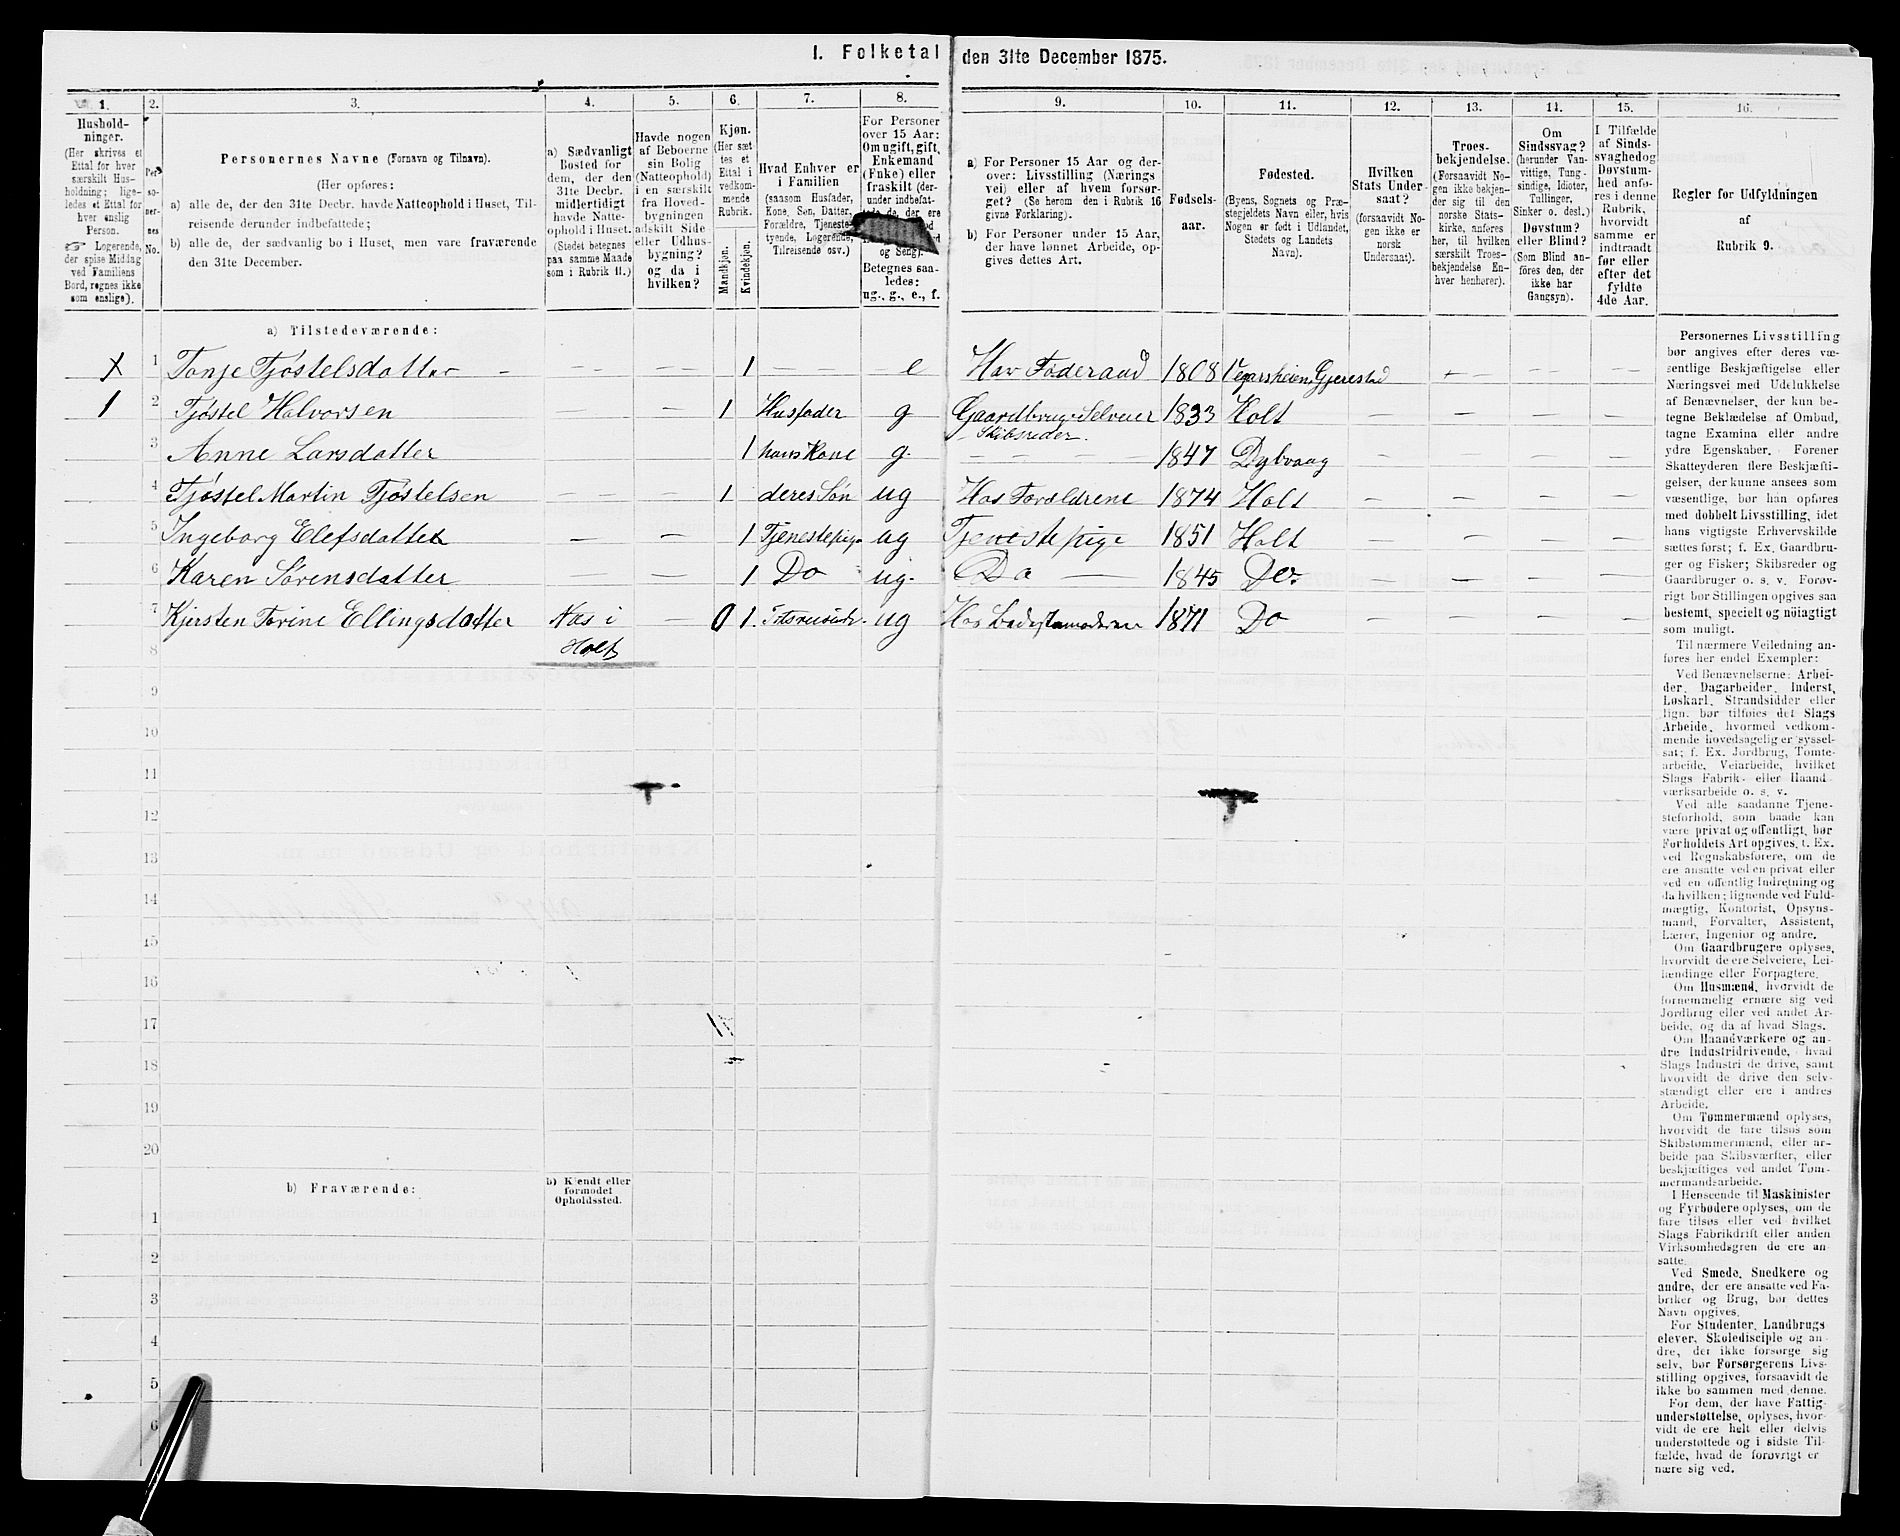 I. Folketal den 31te December 1875.
1. 2. 3. 4. 5. 6. 7. 8. 9. 10. 11. 12. 13. 14. 15. 16.
Hushold-
ninger.
(Her skrives et
Ettal for hver
særskilt Hus-
holdning; lige-
ledes et Ettal for
hver enslig
Person.
☞ Logerende,
der spise Middag
ved Familiens
Bord, regnes ikke
som enslige).
Per-
so-
ner-
nes
No.
Personernes Navne (Fornavn og Tilnavn).
(Her opføres:
a) alle de, der den 31te Decbr. havde Natteophold i Huset, Til-
reisende derunder indbefattede;
b) alle de, der sædvanlig bo i Huset, men vare fraværende
den 31te December.
a) Sædvanligt
Bosted for
dem, der den
31te Decbr.
midlertidigt
havde Natte-
ophold i Huset.
(Stedet betegnes
paa samme Maade
som i Rubrik 11.)
Havde nogen
af Beboerne
sin Bolig
(Natteophold)
i en særskilt
fra Hoved-
bygningen
adskilt Side-
eller Udhus-
bygning?
og da i
hvilken?
Kjøn.
(Her sæt-
tes et
Ettal i
vedkom-
mende
Rubrik.
Mandkjøn.
Kvindekjøn.
Hvad Enhver er
i Familien
(saasom Husfader,
Kone, Søn, Datter,
Forældre, Tjeneste-
tyende, Logerende,
Tilreisende osv.)
For Personer
over 15 Aar:
Om ugift, gift,
Enkemand
(Enke) eller
fraskilt (der-
under indbefat-
tede de, der ere
og Seng).
Betegnes saa-
ledes:
ug., g., e., f.
a) For Personer 15 Aar og der-
over: Livsstilling (Nærings-
vei) eller af hvem forsør-
get? (Se herom den i Rubrik 16
givne Forklaring).
b) For Personer under 15 Aar,
der have lønnet Arbeide, op-
gives dettes Art.
Fødsels-
aar.
Fødested.
(Byens, Sognets og Præ-
stegjeldets Navn eller, hvis
Nogen er født i Udlandet,
Stedets og Landets
Navn).
Hvilken
Stats Under-
saat?
(forsaavidt No-
gen ikke er
norsk
Undersaat).
Troes-
bekjendelse.
(Forsaavidt No-
gen ikke bekjen-
der sig til den
norske Stats-
kirke, anføres
her, til hvilken
særskilt Troes-
bekjendelse En-
hver henhører).
Om
Sindssvag?
(herunder Van-
vittige, Tung-
sindige, Idioter,
Tullinger,
Sinker o. desl.)
Døvstum?
eller Blind?
(Som Blind an-
føres den, der
ikke har
Gangsyn).
I Tilfælde
af Sinds-
svaghed og
Døvstum-
hed anfø-
res i denne
Rubrik,
hvorvidt
samme er
indtraadt
før eller
efter det
fyldte
4de Aar.
Regler for Udfyldningen
af
Rubrik 9.
a) Tilstedeværende:
X 1 Tonje Tjøstelsdatter — — — 1 — — e Har Føderaad 1808 Vegarsheien, Gjerestad — — — —
1 2 Tjøstel Halvorsen — — 1 Husfader g Gaardbruger Selveier 1833 Holt — — — —
Skibsreder.
3 Anne Larsdatter — — 1 hans Kone g. — — — — 1847 Dybvaag — — — —
4 Tjøstel Martin Tjøstelsen — — 1 deres Søn ug Hos Forældrene 1874 Holt — — — —
5 Ingeborg Elefsdatter — — 1 Tjenestepige ug Tjenestepige 1851 Holt — — — —
6 Karen Sørensdatter — — 1 Do ug. Do — 1845 Do. — — — —
7 Kjersten Torine Ellingsdatter Næs i — 0 1. ug 1871 Do — — — —
8 Holt
9
10
11
12
13
14
15
16
17
18
19
20
b) Fraværende:
b) Kjendt eller
formodet
Opholdssted.
1
2
3
4
5
6
Personernes Livsstilling
bør angives efter deres væ-
sentlige Beskjæftigelse eller
Næringsvei med Udelukkelse
af Benævnelser, der kun be-
tegne Beklædelse af Ombud,
tagne Examina eller andre
ydre Egenskaber. Forener
Skatteyderen flere Beskjæfti-
gelser, der kunne ansees som
væsentlige, bør han opføres
med dobbelt Livsstilling, idet
hans vigtigste Erhvervskilde
sættes først; f. Ex. Gaardbru-
ger og Fisker; Skibsreder og
Gaardbruger o. s. v. Forøv-
rigt bør Stillingen opgives saa
bestemt, specielt og nøiagtigt
som muligt.
Til nærmere Veiledning an-
føres her endel Exempler:
Ved Benævnelserne: Arbei-
der, Dagarbeider, Inderst,
Løskarl, Strandsidder eller
lign. bør tilføies det Slags
Arbeide, hvormed vedkom-
mende hovedsagelig er syssel-
sat; f. Ex. Jordbrug, Tomte-
arbeide, Veiarbeide, hvilket
Slags Fabrik- eller Haand-
værksarbeide o. s. v.
Ved alle saadanne Tjene-
steforhold, som baade kan
være privat og offentligt, bør
Forholdets Art opgives, f. Ex.
ved Regnskabsførere, om de
ere ansatte ved en privat eller
ved en offentlig Indretning og
da hvilken; lignende ved Fuld-
mægtig, Kontorist, Opsyns-
mand, Forvalter, Assistent,
Lærer, Ingeniør og andre.
Om Gaardbrugere oplyses,
hvorvidt de ere Selveiere, Lei-
lændinge eller Forpagtere.
Om Husmænd, hvorvidt de
fornemmelig ernære sig ved
Jordbrug eller ved andet Ar-
beide, og da af hvad Slags.
Om Haandværkere og an-
dre Industridrivende, hvad
Slags Industri de drive, samt
hvorvidt de drive den selv-
stændigt eller ere i andres
Arbeide.
Om Tømmermænd oplyses,
hvorvidt de fare tilsøs som
Skibstømmermænd, eller ar-
beide paa Skibsværfter, eller
beskjæftiges ved andet Tøm-
mermandsarbeide.
I Henseende til Maskinister
og Fyrbødere oplyses, om de
fare tilsøs eller ved hvilket
Slags Fabrikdrift eller anden
Virksomhedsgren de ere an-
satte.
Ved Smede, Snedkere og
andre, der ere ansatte ved Fa-
briker og Brug, bør dettes
Navn opgives.
For Studenter, Landbrugs-
elever, Skoledisciple og an-
dre, der ikke forsørge sig
selv, bør Forsørgerens Livs-
stilling opgives, forsaavidt de
ikke bo sammen med denne.
For dem, der have Fattig-
understøttelse, oplyses, hvor-
vidt de ere helt eller delvis
understøttede og i sidste Til-
fælde, hvad de forøvrigt er-
nære sig ved.